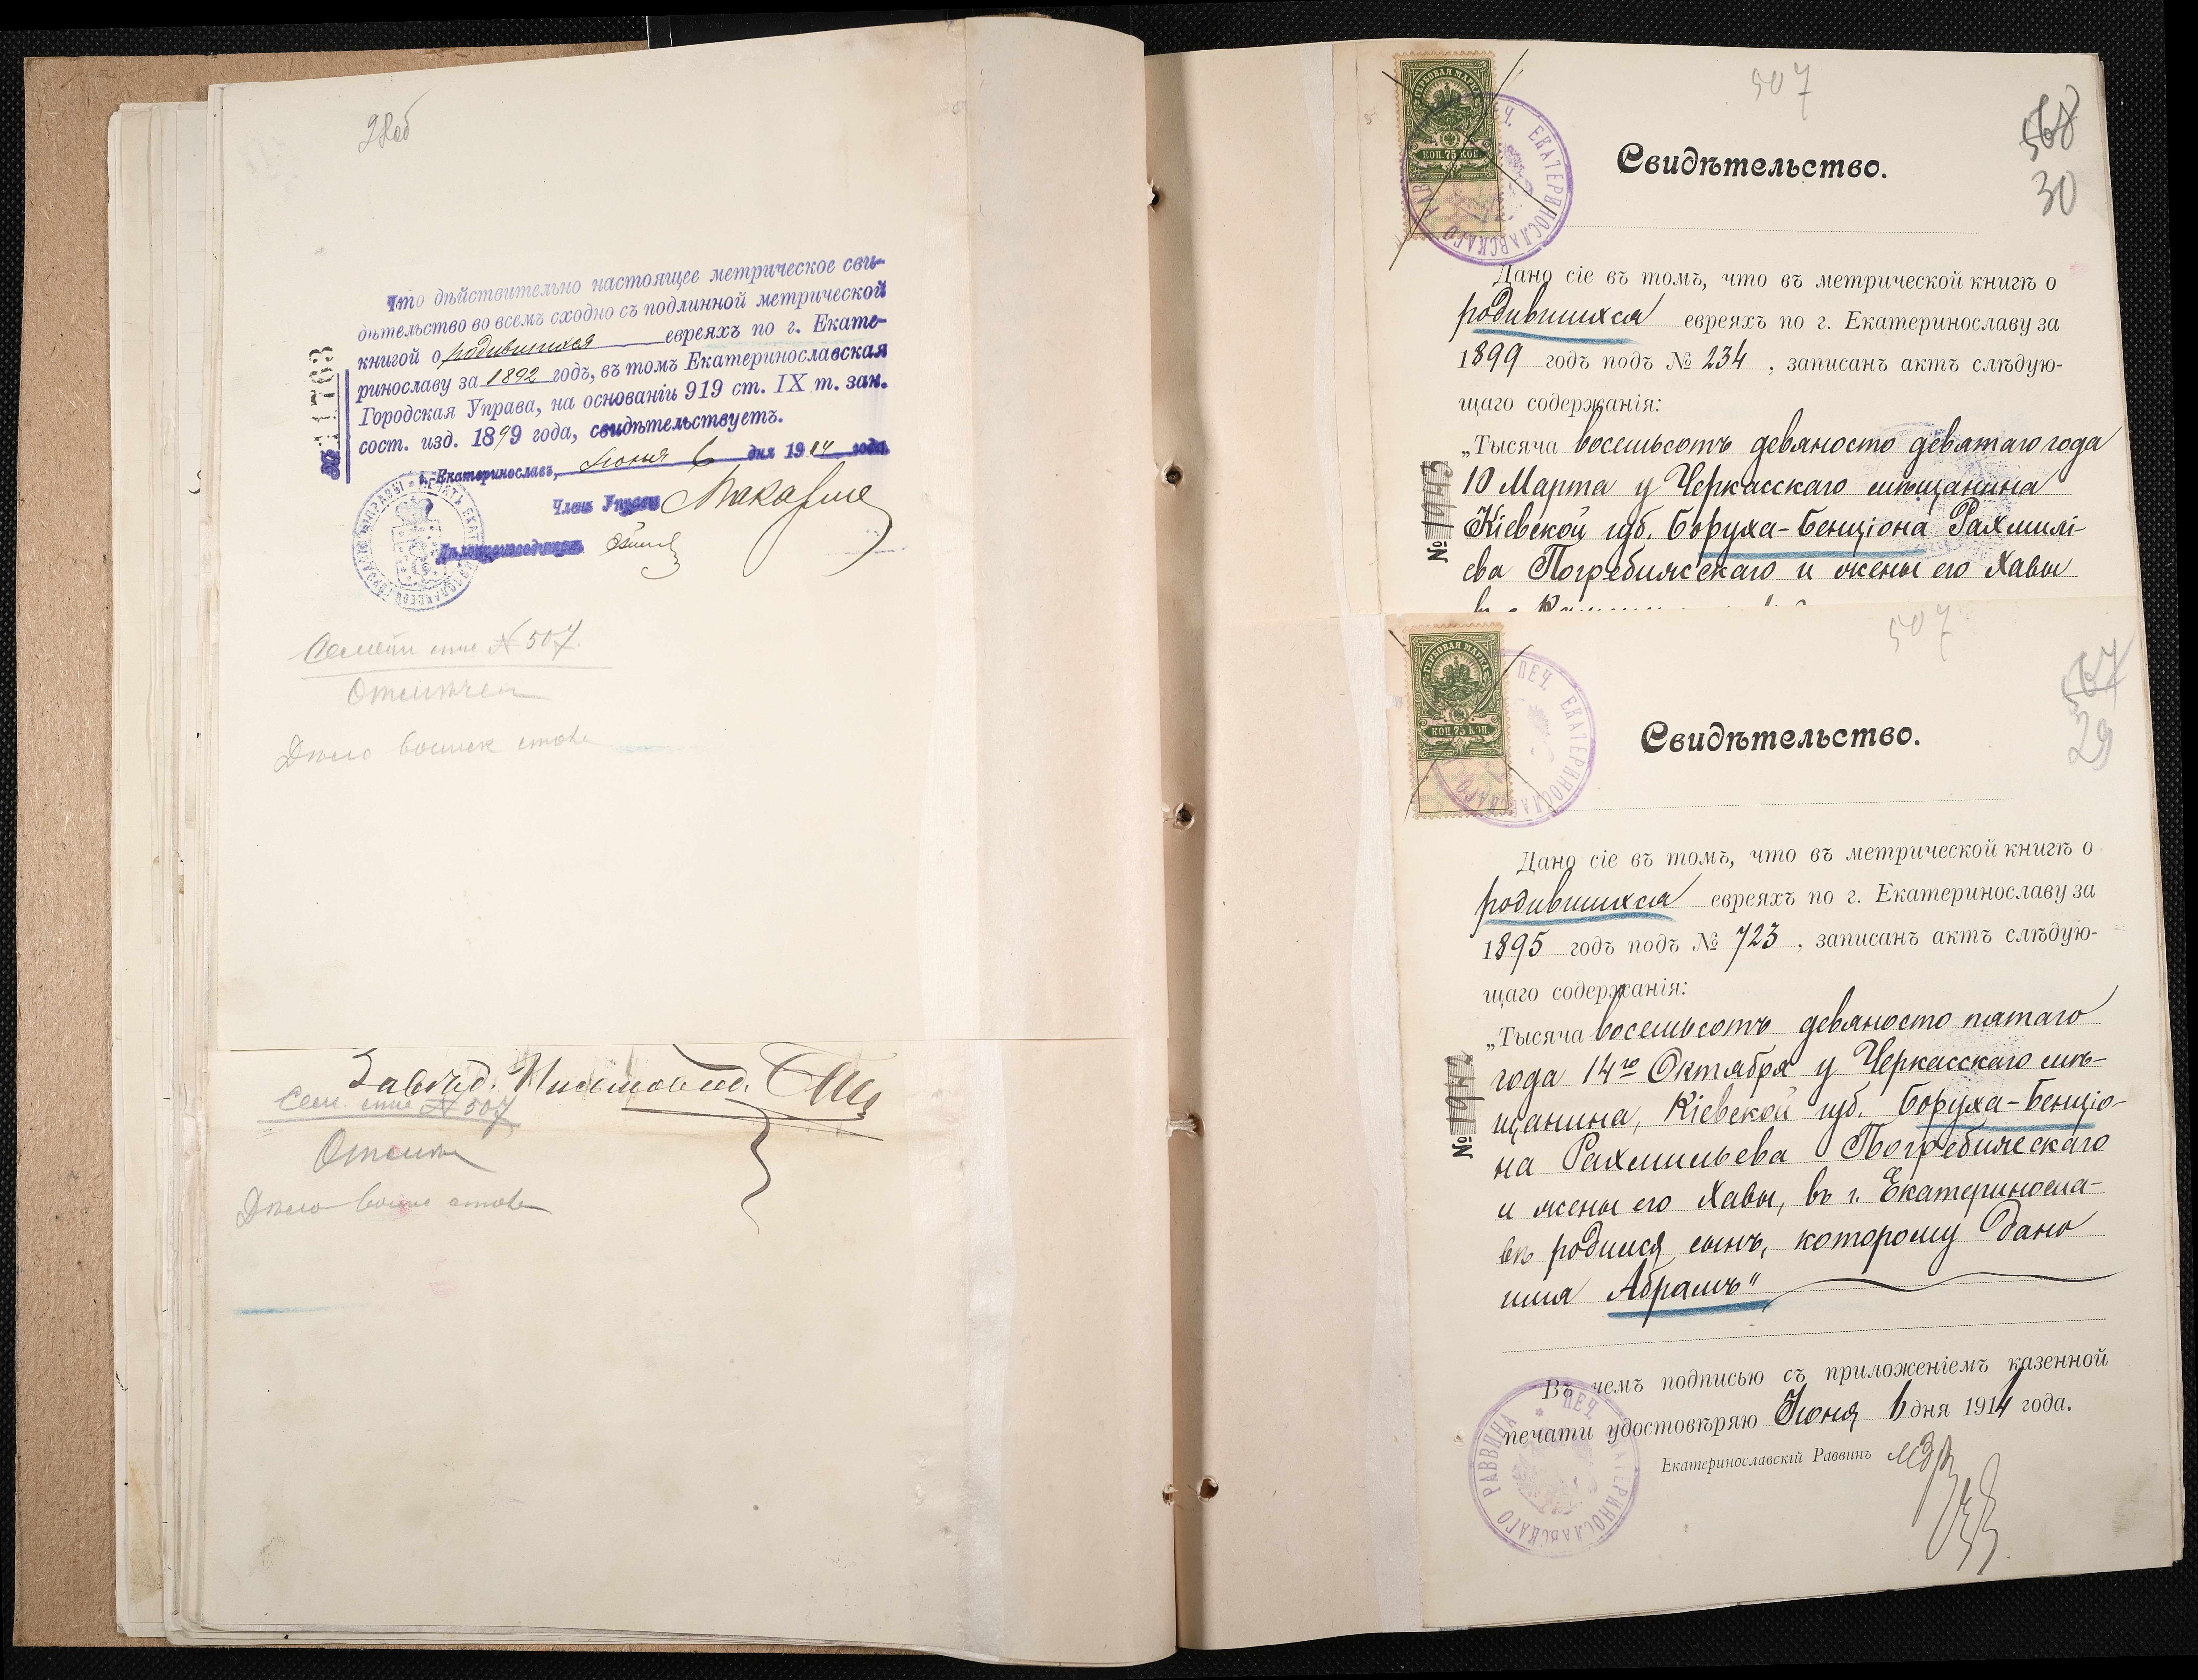 28об
Что дѣйствительно настоящее метрическое сви-
дѣтельство во всемъ сходно съ подлинной метрической
книгой о родившихся евреяхъ по г. Екате-
ринославу за 1892 годъ, въ томъ Екатеринославская
Городская Управа, на основаніи 919 ст. IX т. зак.
сост. изд. 1899 года, свидѣтельствуетъ.
г. Екатеринославъ, Іюня 6 дня 1914 года
Членъ Управы
Дѣлопроизводитель
№ 507.
Отмѣчен
Дѣло
Завѣд.
№ 507
Дѣло
507
568
30
ГЕРБОВАЯ МАРКА
КОП. 75 КОП.
ПЕЧ. ЕКАТЕРИНОСЛАВСКАГО РАВВИНА
Свидѣтельство.
Дано сіе въ томъ, что въ метрической книгѣ о
родившихся евреяхъ по г. Екатеринославу за
1899 годъ подъ № 234, записанъ актъ слѣдую-
щаго содержанія:
„Тысяча восемьсотъ девяносто девятаго года
10 Марта у Черкасскаго мѣщанина
Кіевской губ. Боруха-Бенціона Рахмилі-
ева Погребижскаго и жены его Хавы
№ 1943
507
567
29
ГЕРБОВАЯ МАРКА
КОП. 75 КОП.
ПЕЧ. ЕКАТЕРИНОСЛАВСКАГО
Свидѣтельство.
Дано сіе въ томъ, что въ метрической книгѣ о
родившихся евреяхъ по г. Екатеринославу за
1895 годъ подъ № 723, записанъ актъ слѣдую-
щаго содержанія:
„Тысяча восемьсотъ девяносто пятаго
года 14го Октября у Черкасскаго мѣ-
щанина, Кіевской губ. Боруха-Бенціо-
на Рахмильева Погребижскаго
и жены его Хавы, въ г. Екатериносла-
вѣ родился сынъ, которому дано
имя Абрамъ"
№ 1942
Въ чемъ подписью съ приложеніемъ казенной
печати удостовѣряю Іюня 6 дня 1914 года.
Екатеринославскій Раввинъ
ПЕЧ. ЕКАТЕРИНОСЛАВСКАГО РАВВИНА